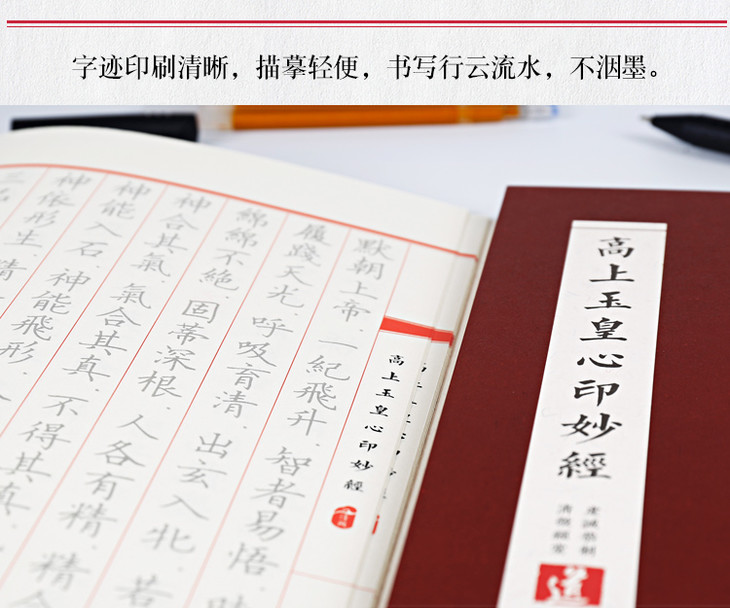 字迹印刷清晰，描摹轻便，书写行云流水，不洇墨。
默朝上帝.一紀飛升.智者易悟.
履踐天光.呼吸育清.出玄入牝.若
綿綿不絕.固蒂深根.人各有精.精
神合其氣.氣合其真.不得其真.
神能入石.神能飛形.
神依形生.精
高上玉皇心印妙經
高上玉皇心印妙經
道